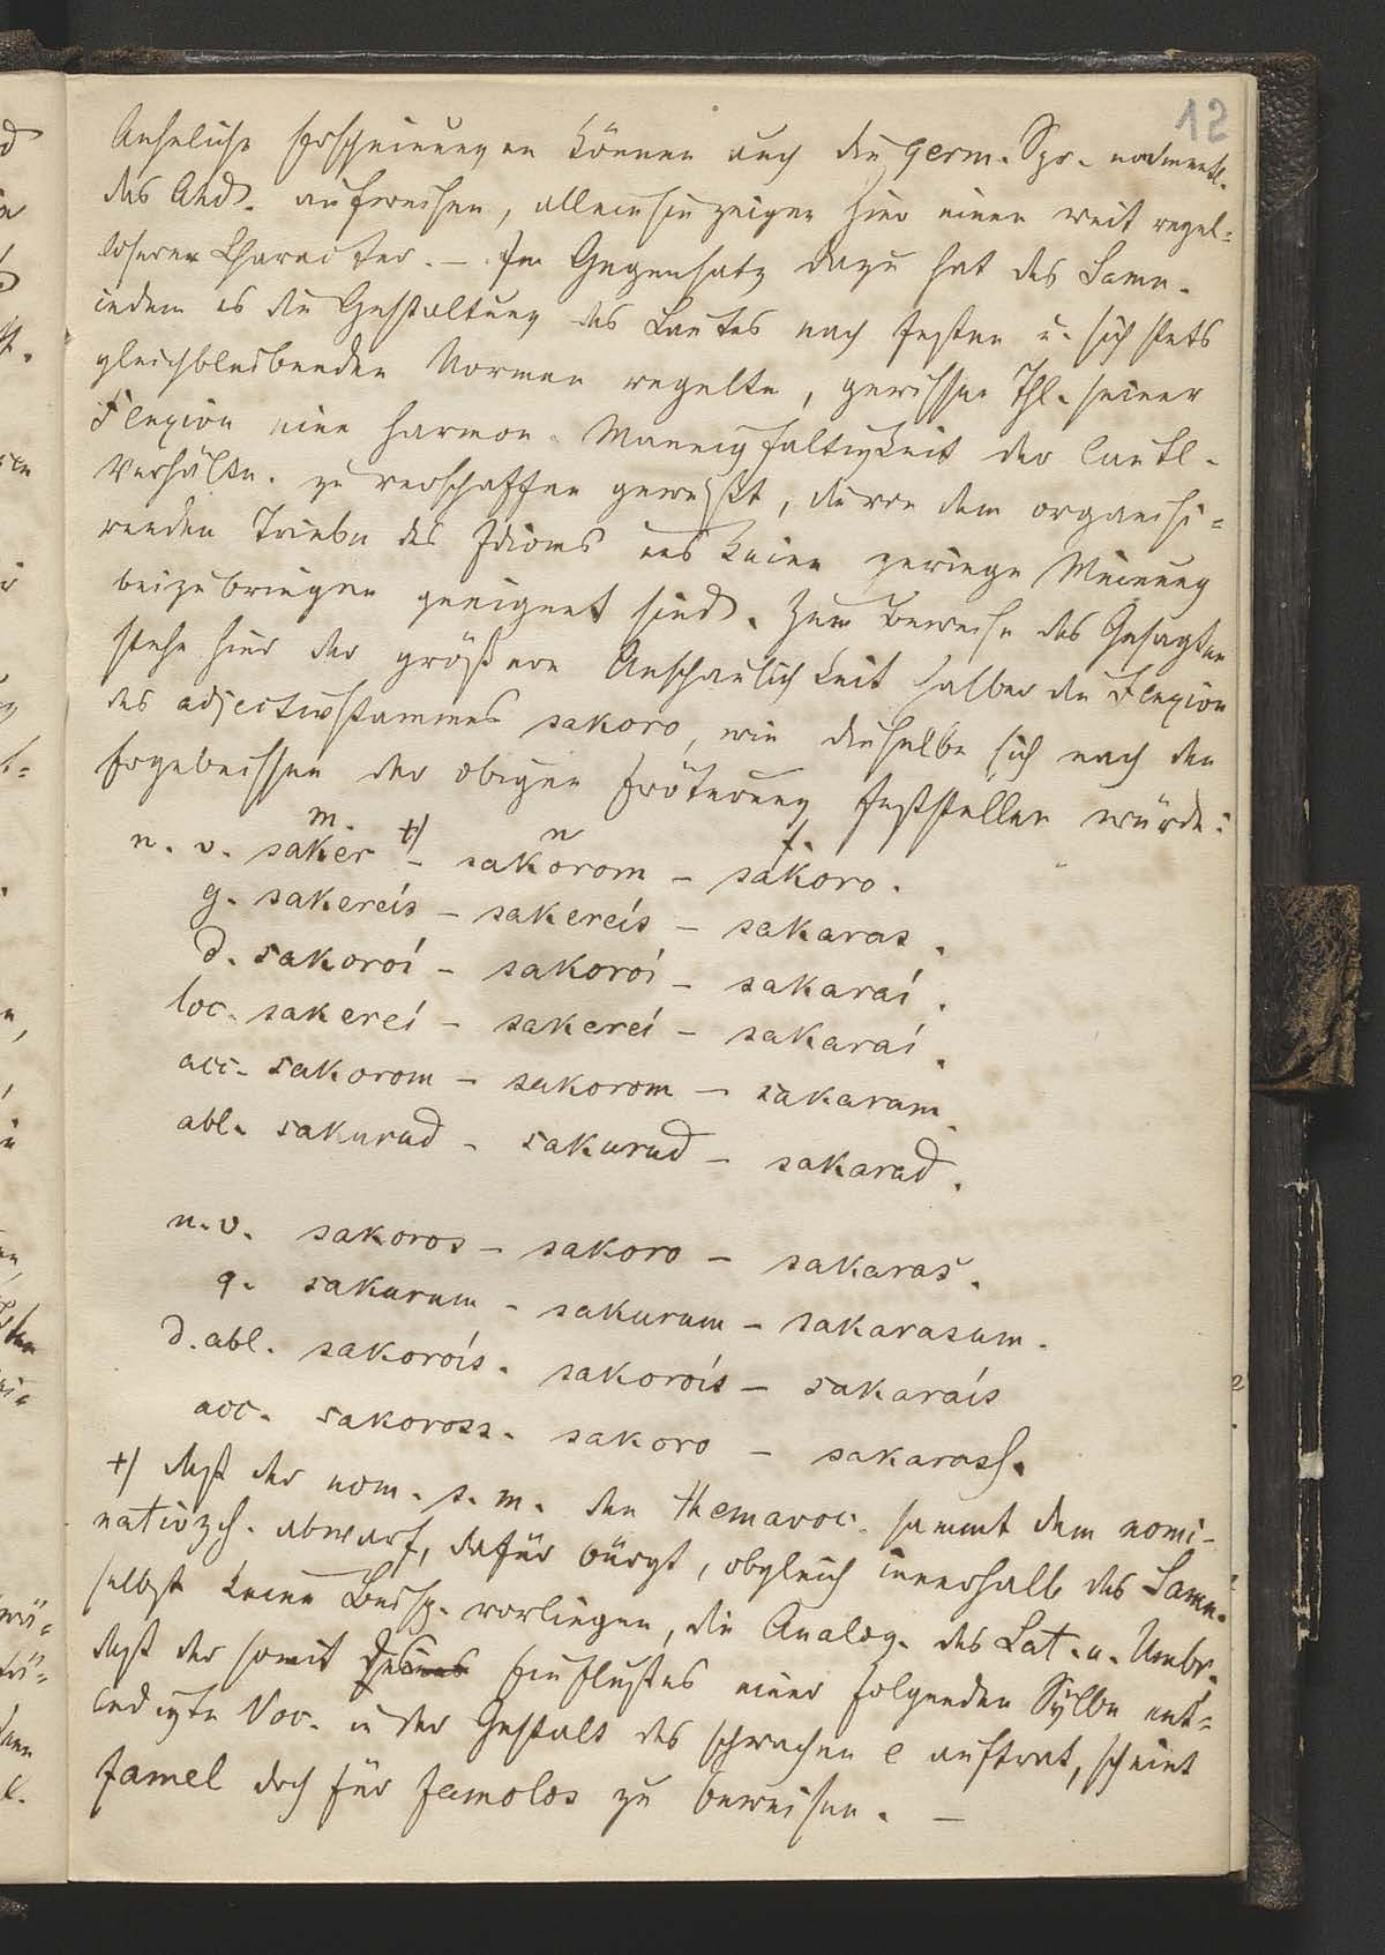 12
Aenliche Erscheinungen können auch die germ. Spr. namentl.
das And. aufweisen, allein sie zeigen hier einen weit regel-
loseren Character. – Im Gegensatz dazu hat das Samn.
indem es die Gestaltung des Lautes nach festen u. sich stets
gleichbleibenden Normen regelte, gewissen Thl. seiner
Flexion eine harmon. Mannigfaltigkeit der lautl.
Verhältn. zu verschaffen gewußt, die von dem organisi-
renden Triebe des Idioms uns keine geringe Meinung
beizubringen geeignet sind. Zum Beweise des Gesagten
stehe hier der größeren Anschaulichkeit halber die Flexion
des adjectivstammes sakoro, wie dieselbe sich nach den
Ergebnissen der obigen Erörterung feststellen würde:
m. n f.
n. v. saker +) – sakorom – sakoro.
g. sakereís – sakereís – sakaras.
d. sakoroí – sakoroí – sakaraí.
loc. sakereí – sakereí – sakaraí.
acc. sakorom – sakorom – sakaram.
abl. sakurud – sakurud – sakarad.
n. v. sakoros – sakoro – sakaras.
g. sakurum – sakurum – sakarasum.
d. abl. sakoroís. sakoroís – sakaraís
acc. sakoross. sakoro – sakarass.
+) daß der nom. s. m. den themavoc. sammt dem nomi-
nativzch. abwarf, dafür bürgt, obgleich innerhalb des Samn.
selbst keine Beisp. vorliegen, die Analog. des Lat. u. Umbr.
daß der somit Einflußes einer folgenden Sylbe ent-
ledigte Voc. in der Gestalt des schwachen e auftrat, scheint
famel doch für famolos zu beweisen. –